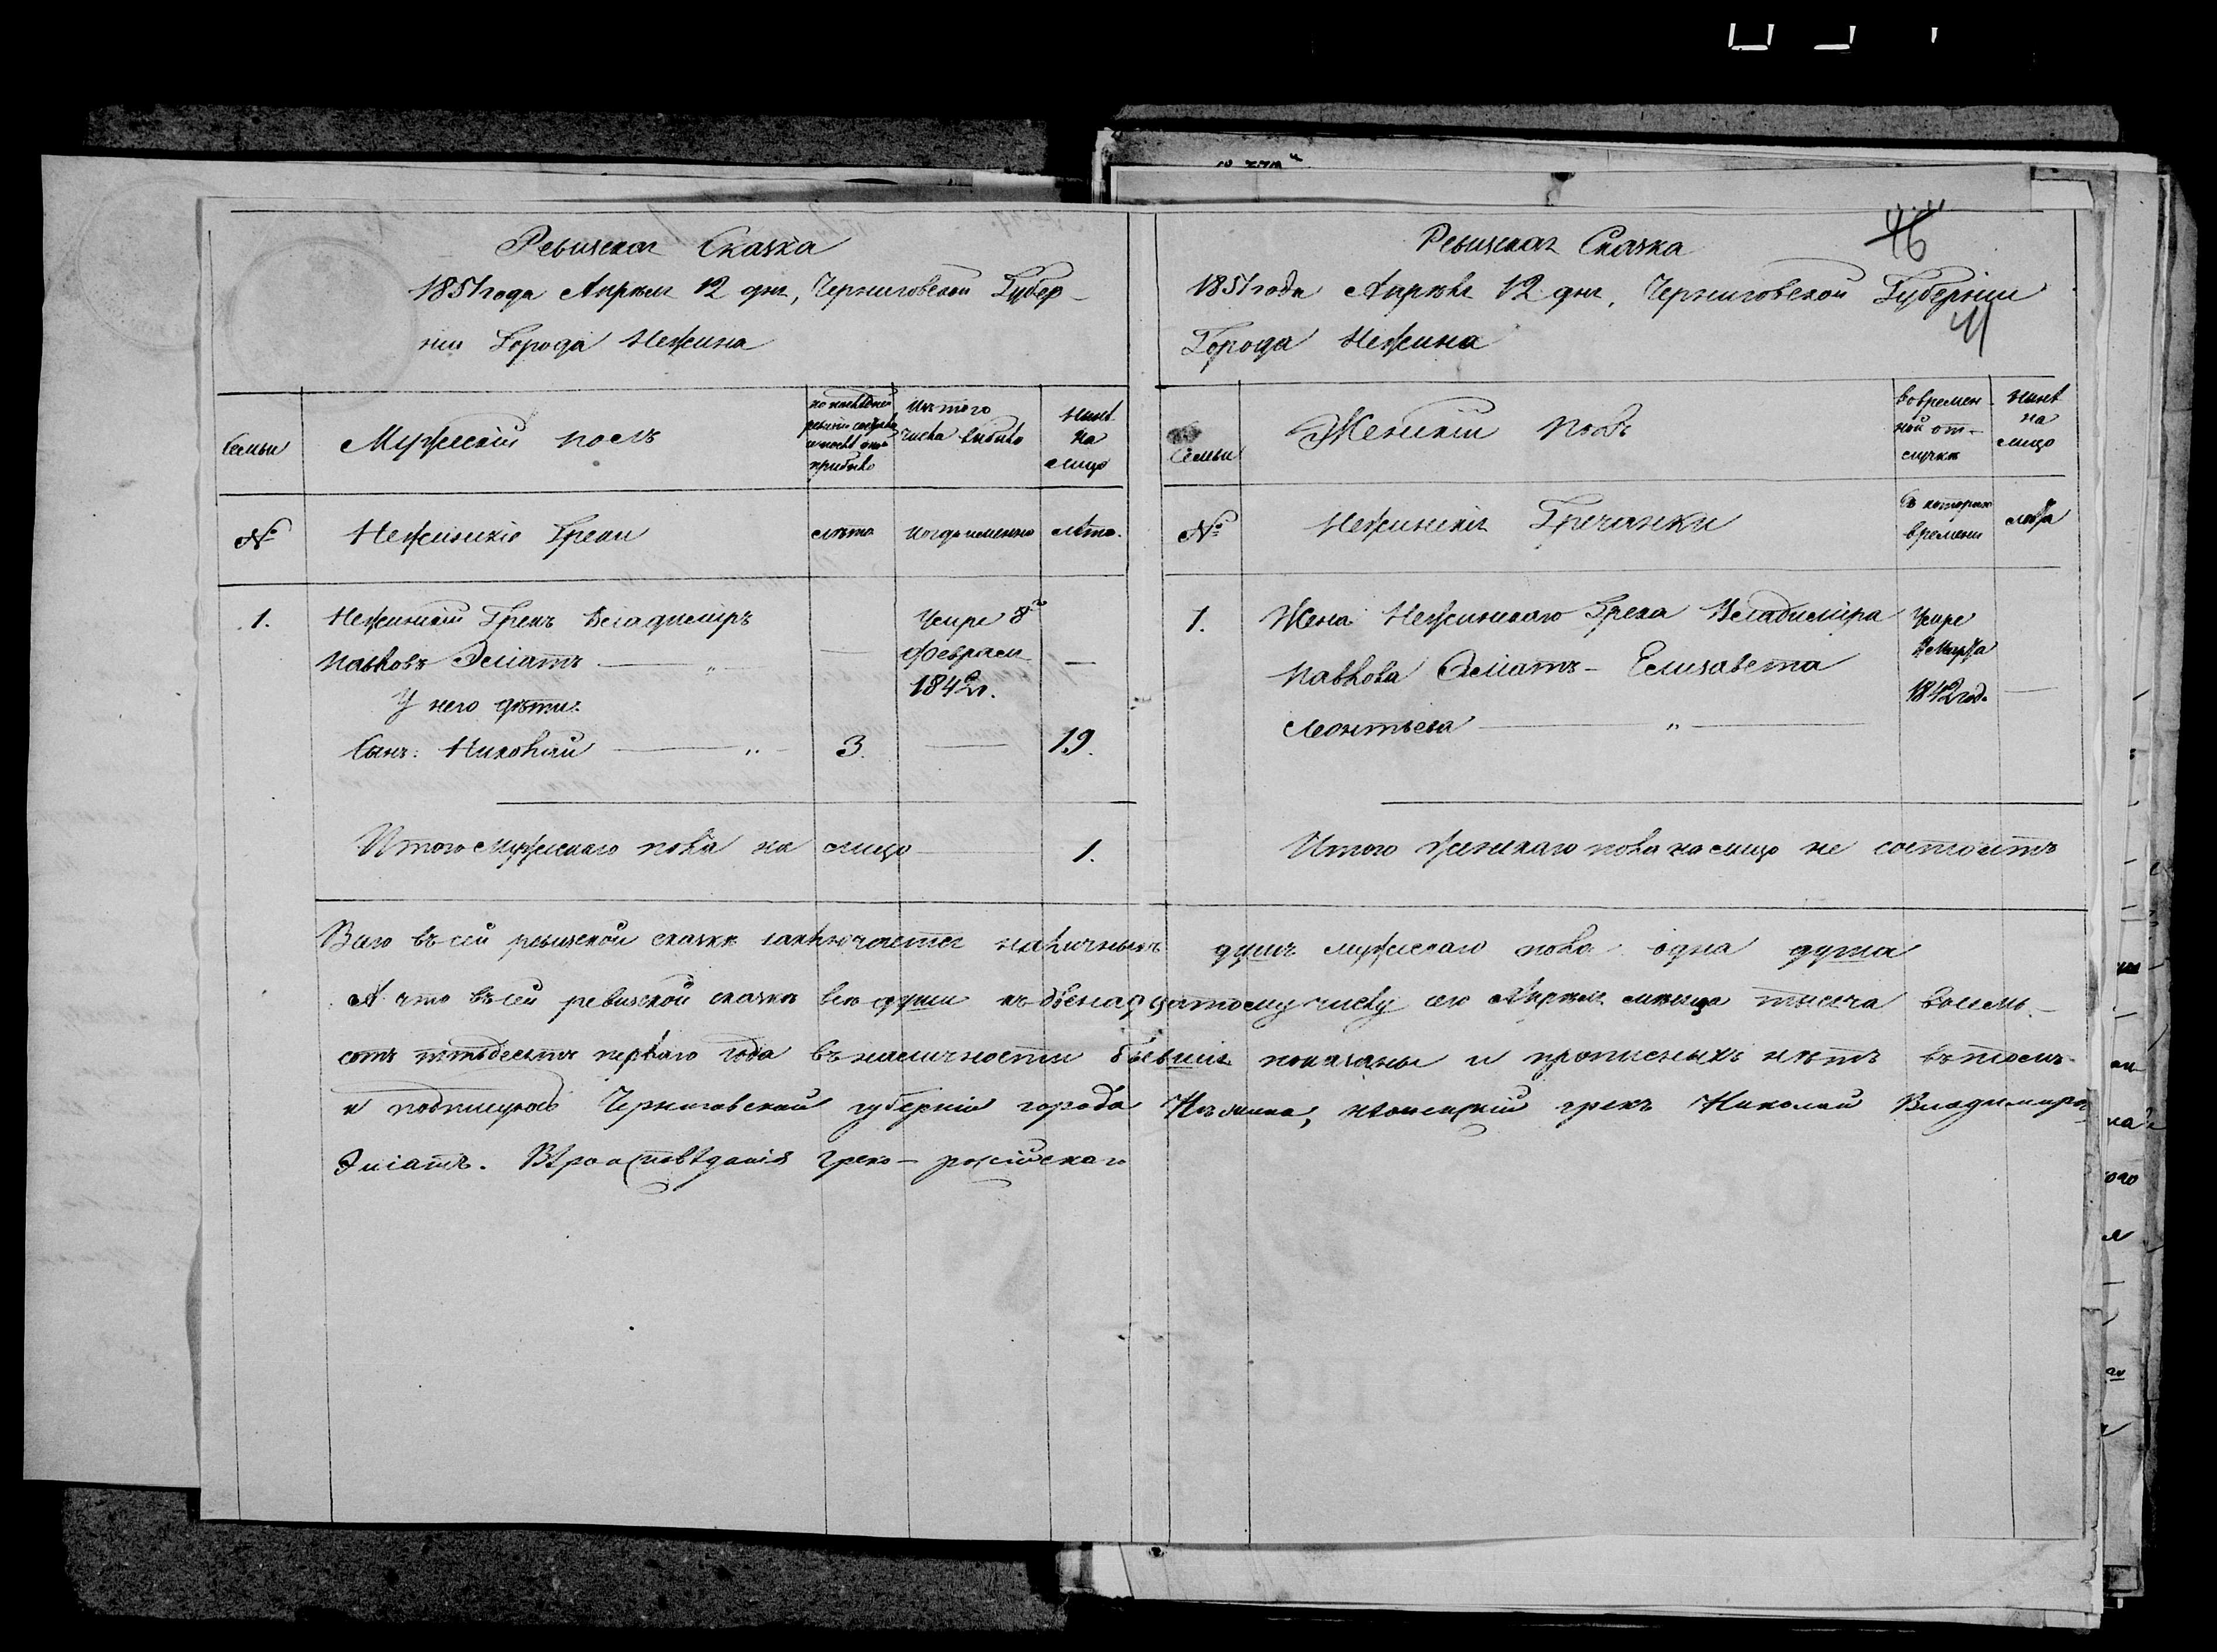 Ревизская Сказка
1851 года Апреля 12 дня, Черниговской Губер-
ніи Города Нежина
Семьи
Мужескій полъ
по последней ревизіи состояло и после оной прибыло
Изъ того числа выбыло
Ныне на лицо
№
Нежинскіе Греки
лета
Когда именно
лета.
1.
Нежинскій Грекъ Владимиръ
Павловъ Эліатъ — „ —
—
Умре 8го
Февраля
1842г.
—
У него дѣти:
Сынъ: Николай — „ —
3.
—
19.
Итого мужескаго пола на лицо —
1.
Ревизская Сказка
46
1851 года Апреля 12 дня, Черниговской Губерніи
41
Города Нежина
Семьи
Женскій полъ
Во времен-
ной от-
лучке
Ныне
на
лицо
№
Нежинскія Гречанки
Съ котораго
времени
лета
1.
Жена Нежинскаго Грека Владимира
Павлова Эліатъ - Елизавета
Леонтьева — „ —
Умре
Марта
1842 год.
—
Итого женскаго пола на лицо не состоитъ
Всего въ сей ревизской сказке заключается наличныхъ душъ мужескаго пола одна душа
А что въ сей ревизской сказкѣ все души къ двенадцатому числу сего Апреля месяца тысяча восемь-
сотъ пятьдесятъ перваго года въ наличности бывшія показаны и прописныхъ нѣтъ въ томъ
и подпишуюсь Черниговской губерніи города Нежина, нѣжинскій грекъ Николай Владимировъ
Эліатъ. Вѣроисповѣданія Греко-россійскаго